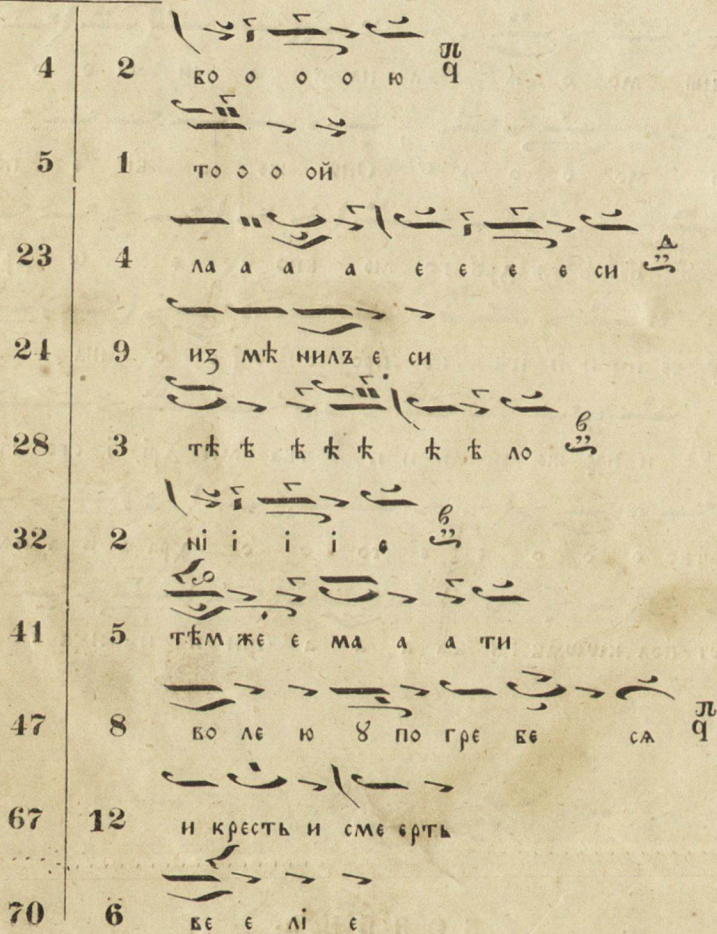 4 2 во о о о ю п ҁ
5 1 то о о ой
23 4 ла а а а е е е е си д
24 9 из мѣ нилъ е си
28 3 тѣ ѣ ѣ ѣ ѣ ѣ ѣ ло в
32 2 ні і і і е в
41 5 тѣм же е ма а а ти
47 8 во ле ю ꙋ по гре бе сѧ п ҁ
67 12 и кресть и сме ерть
70 6 ве е лі е